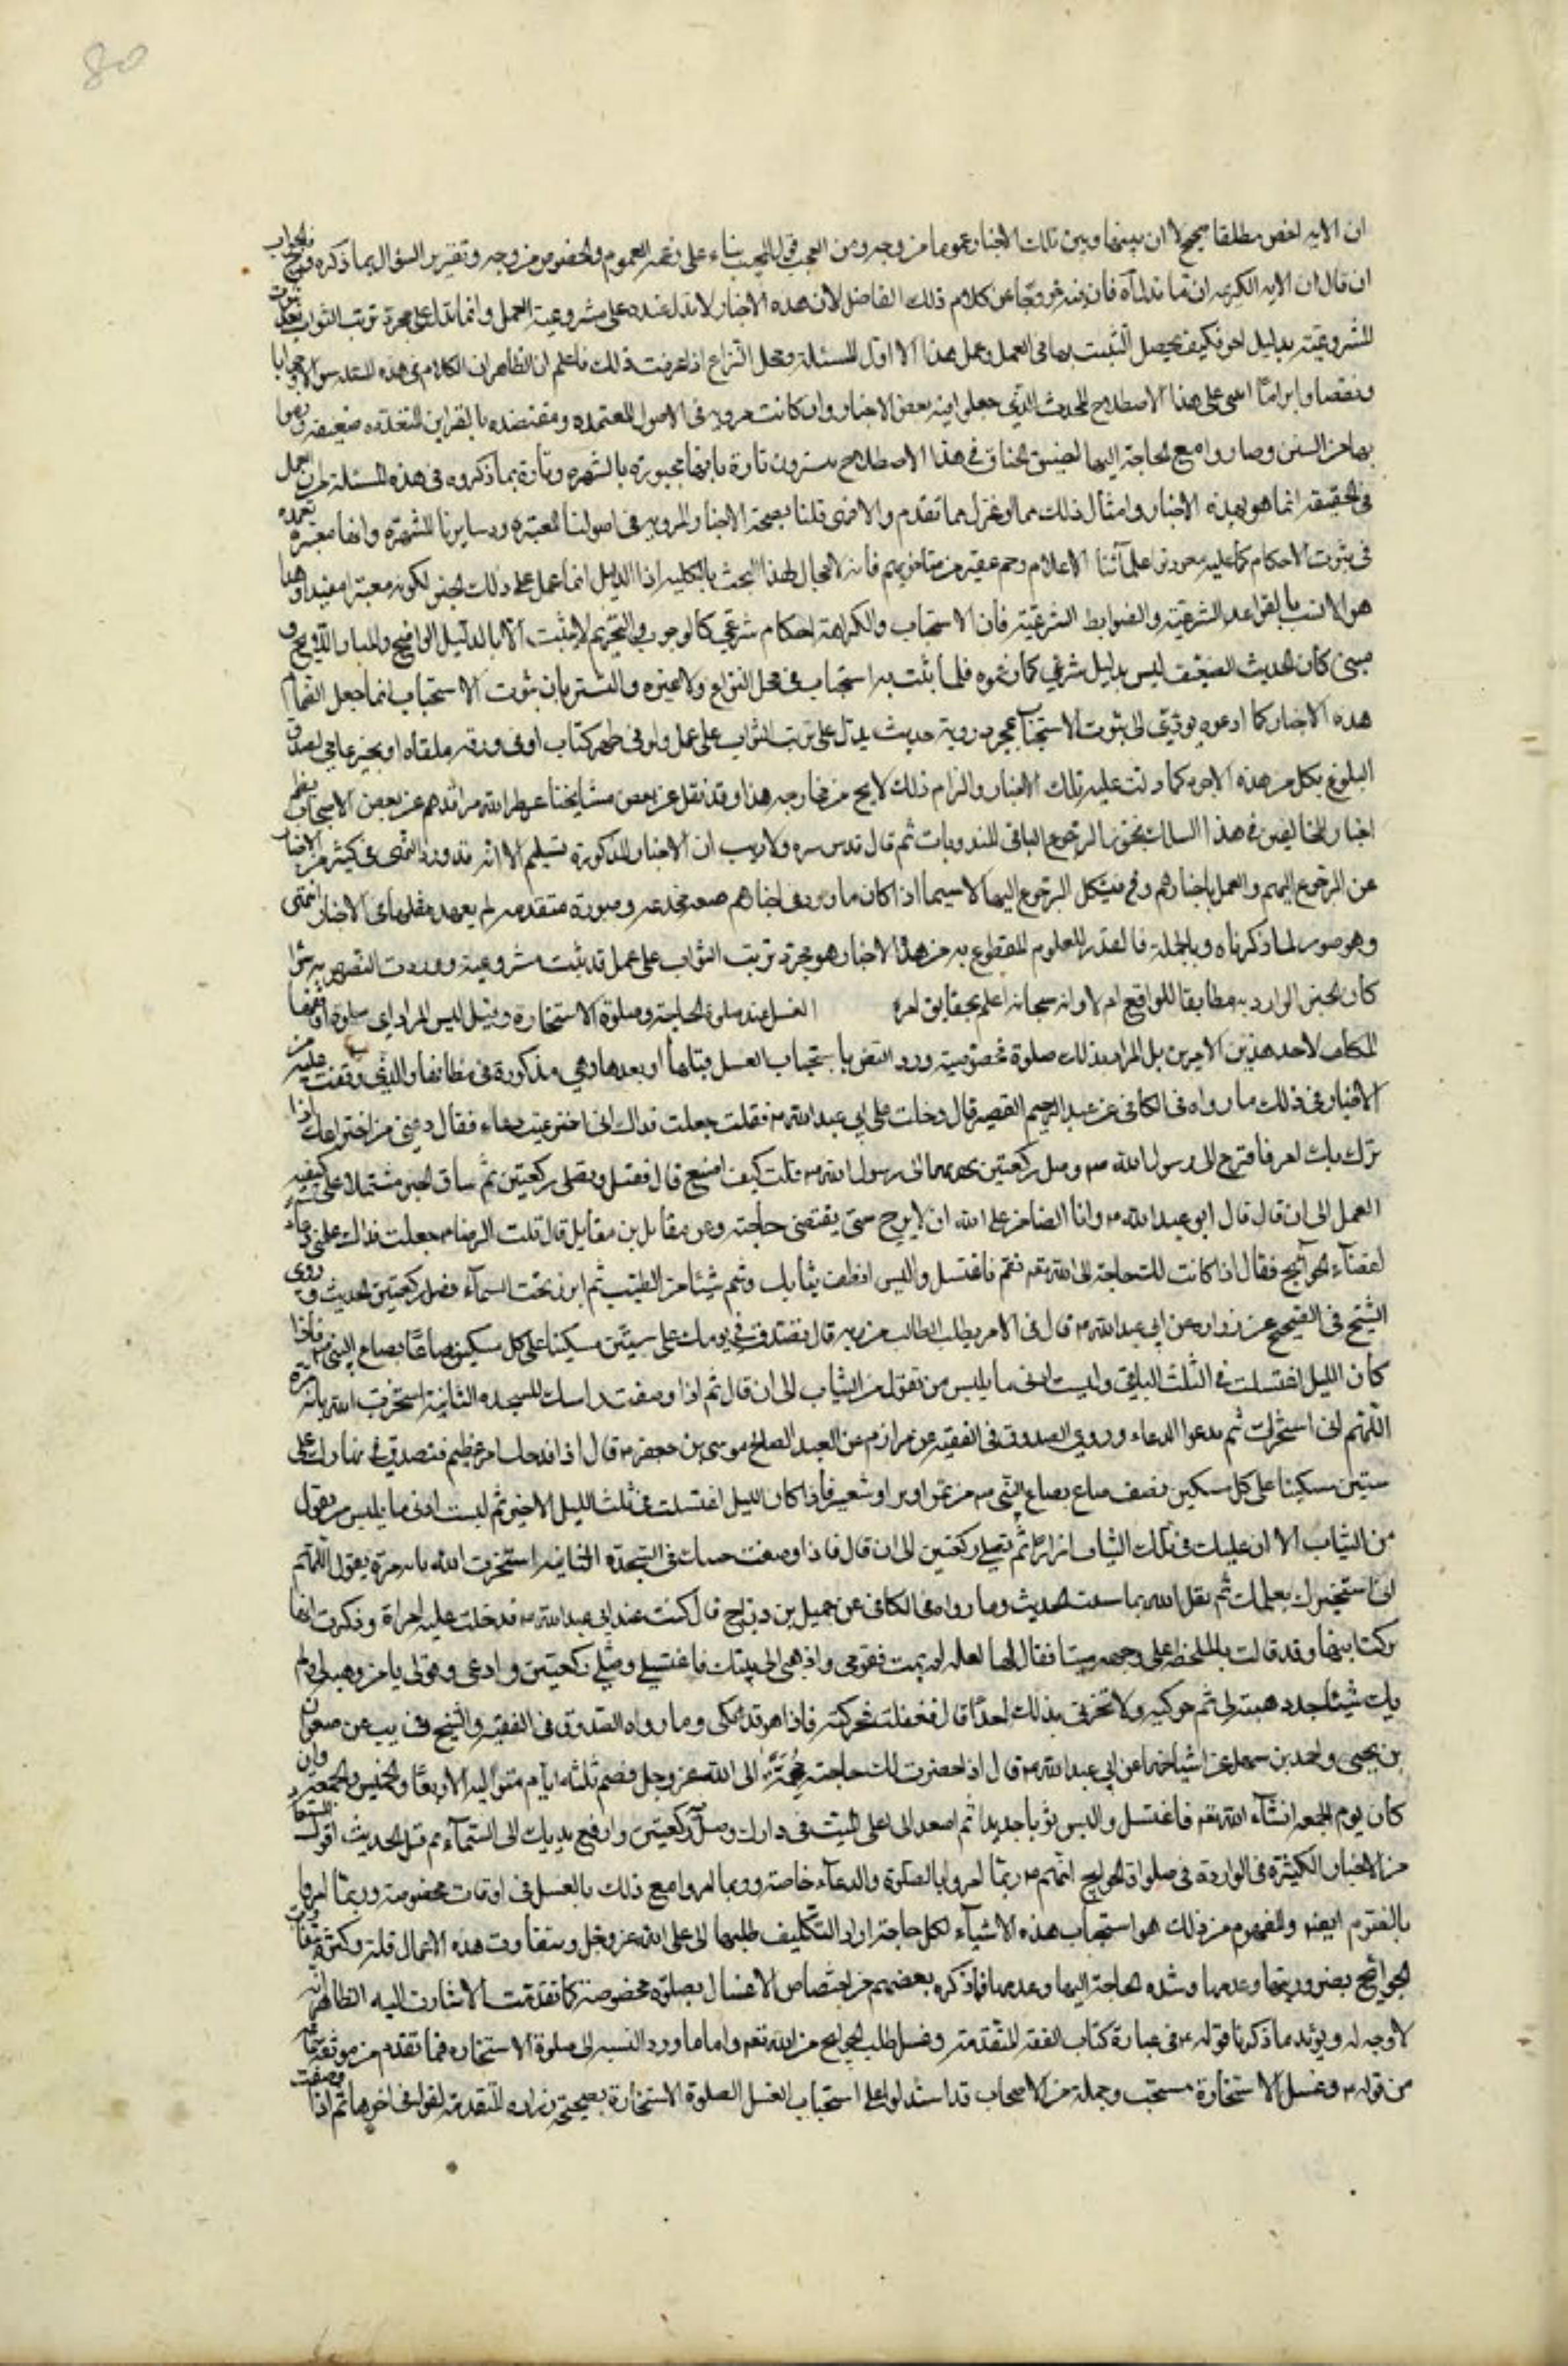 80
ان الايه اخص مطلقا صحيح لا ان بينها وبين تلك الاخبار عموما من وجه ومن العجب قول المجيب بناء على العموم والخصوص من وجه وتقرير السؤال بما ذكره فالجواب
ان قال ان الايه الكريمه فان فيه خروجا عن كلام ذلك الفاضل لان هذه الاخبار لا تدل عنده على مشروعية العمل وانما تدل على مجرد ترتب الثواب بعد ثبوت
المشروعية بدليل اخر فكيف يحصل التثبت بها فى العمل وهل هذا الا اول المسئلة ومحل النزاع اذا عرفت ذلك فاعلم ان الظاهر ان الكلام فى هذه المسئله سوالا وجوابا
ونقضا وابراما ابتنى على هذا الاصطلاح المحدث الذي جعلوا فيه بعض الاخبار وان كانت مرويه فى الاصول المعتمده ومعتضده بالقراين المتعدده ضعيفه ورموا
بها من البين وصاروا مع الحاجة اليها لضيق الخناق في هذا الاصطلاح يتسترون تارة بانها مجبورة بالشهره وتارة بما ذكروه فى هذه المسئلة من ان العمل
فى الحقيقة انما هو بهذه الاخبار وامثال ذلك مما اوغزل مما تقدم والا فمتى قلنا بصحة الاخبار المرويه فى اصولنا المعتبره ودساتيرنا المشتهره وانها معتبره معتمده
فى ثبوت الاحكام كما عليه متقدموا علمائنا الاعلام وجم غفير من متاخريهم فانه لا مجال لهذا البحث بالكليه اذا الدليل انما عمل على ذلك الخبر لكونه معتبرا مفيدا وهذا
هو الانسب بالقواعد الشرعية والضوابط الشرعية فان الاستحباب والكراهة احكام شرعيه كالوجوب والتحريم لا تثبت الا بالدليل الواضح والمنار اللايح و
متى كان الحديث الضعيف ليس بدليل شرعي كما زعموه فلا يثبت به استحباب فى محل النزاع ولا غيره والتستر بان ثبوت الاستحباب انما جعل انضمام
هذه الاخبار كما ادعوه يؤدي الى ثبوت الاستحباب بمجرد روية حديث يدل على ترتب الثواب على عمل ولو فى ظهر كتاب او فى ورقه ملقاه او بخبر عامي لصدق
البلوغ بكل من هذه الامور كما دلت عليه تلك الاخبار والتزام ذلك لا يخ من خارجه هذا وقد نقل عن بعض مشايخنا عطر الله مراقدهم عن بعض الاصحاب نظم
اخبار المخالفين فى هذا السلك بتجويز الرجوع اليها فى المندوبات ثم قال قدس سره ولا ريب ان الاخبار المذكورة تشملهم الا انه قد ورد النهى فى كثير من الاخبار
عن الرجوع اليهم والعمل باخبارهم وح فيشكل الرجوع اليها لا سيما اذا كان ما ورد فى اخبارهم صفه مخترعه وصورة متقدمه لم يعهد مثلها فى الاخبار انتهى
وهو صريح لما ذكرناه وبالجملة فالقدر المعلوم المقطوع به من هذه الاخبار هو مجرد ترتب الثواب على عمل قد ثبت مشروعيته ووردت النصوص به سواء
كان الخبر الوارد به مطابقا للواقع ام لا وانه سبحانه اعلم بحقايق امره الغسل عند صلوة الحاجة وصلوة الاستخارة وقيل ليس المراد اى صلوة اوقعها
المكلف لاحد هذين الامرين بل المراد بذلك صلوة مخصوصة ورد النص باستحباب الغسل قبلها او بعدها وهي مذكورة فى مظانها والذي وقفت عليه من
الاخبار فى ذلك ما رواه فى الكافى عن عبد الرحيم القصير قال دخلت على ابي عبد الله ع فقلت جعلت فداك انى اخترعت دعاء فقال دعنى من اختراعك اذا
نزل بك امر فافزع الى رسول الله ص وصل ركعتين تهديهما الى رسول الله ص قلت كيف اصنع قال تغتسل وتصلى ركعتين ثم ساق الخبر مشتملا على كيفية
العمل الى ان قال قال ابو عبد الله ع وانا الضامن على الله ان لا يبرح حتى يقتضى حاجته وعن مقاتل بن مقاتل قال قلت للرضا ع جعلت فداك علمنى دعاء
لقضاء الحوائج فقال اذا كانت لك حاجة الى الله تعم مهمه فاغتسل والبس انظف ثيابك وشم شيئا من الطيب ثم ابرز تحت السماء فصل ركعتين الحديث وروى
الشيخ فى الصحيح عن زراره عن ابى عبد الله ع قال فى الامر يطلبه الطالب من ربه قال تتصدق في يومك على ستين مسكينا على كل مسكين صاعا بصاع النبي ص فاذا
كان الليل اغتسلت فى الثلث الباقي ولبست ادنى ما يلبس من تعول من الثياب الى ان قال ثم اذا وضعت راسك للسجده الثانية استخرت الله مائة مرة
اللهم انى استخيرك ثم تدعوا الدعاء وروى الصدوق فى الفقيه عن مرازم عن العبد الصالح موسى بن جعفر ع قال اذا فدحك امر عظيم فتصدق في نهارك على
ستين مسكينا على كل مسكين نصف صاع بصاع النبي ص من تمر او بر او شعير فاذا كان الليل اغتسلت فى ثلث الليل الاخير ثم لبست ادنى ما يلبس من تعول
من الثياب الا ان عليك فى تلك الثياب ازارا ثم تصلى ركعتين الى ان قال فاذا وضعت جبينك فى السجدة الثانيه استخرت الله مائه مرة يقول اللهم
انى استخيرك بعلمك ثم تدعو الله بما شئت الحديث وما رواه فى الكافى عن جميل بن دراج قال كنت عند ابي عبد الله ع فدخلت عليه امراة وذكرت انها
تركت ابنها وقد قالت بالملحفه على وجهه ميتا فقال لها لعله لم يمت فقومى واذهبى الى بيتك فاغتسلي وصلي ركعتين وادعى وقولى يا من وهبه لى ولم
يك شيئا جدد هبته لى ثم حركيه ولا تخبرى بذلك احدا قال ففعلت فحركته فاذا هو قد بكى وما رواه الصدوق فى الفقيه والشيخ فى يب عن صفوان
بن يحيى ومحمد بن سهل عن اشياخهما عن ابي عبد الله ع قال اذا حضرت لك حاجة مهمة الى الله عز وجل فصم ثلثه ايام متواليه الاربعا والخميس والجمعة وان
كان يوم الجمعه انشاء الله تعم فاغتسل والبس ثوبا جديدا ثم اصعد الى اعلى البيت فى دارك وصل ركعتين وارفع يديك الى السماء ثم قل الحديث اقول المستفاد
من الاخبار الكثيرة فى الواردة فى صلوات الحوايج انهم ع ربما امروا بالصلوة والدعاء خاصة وربما امروا مع ذلك بالغسل فى اوقات مخصوصة وربما امروا
بالصوم ايضا والمفهوم من ذلك هو استحباب هذه الاشياء لكل حاجة اراد التكليف طلبها الى على الله عز وجل وبتفاوت هذه الاعمال قلة وكثرة بتفاوت
الحوائج بضروريتها وعدمها وشده الحاجة اليها وعدمها فما ذكره بعضهم من اختصاص الاغسال بصلوة مخصوصة كما تقدمت الاشارة اليه الظاهر انه
لا وجه له ويؤيد ما ذكرنا قوله ع فى عبارة كتاب الفقه المتقدمة وغسل طلب الحوايج من الله تعم واما ما ورد بالنسبه الى صلوة الاستخاره فما تقدم من موثقه سماعه
من قوله ع وغسل الاستخارة مستحب وجملة من الاصحاب قد استدلوا على استحباب الغسل لصلوة الاستخارة بصحيحة زراره المتقدمة لقوله فى اخرها ثم اذا وضعت